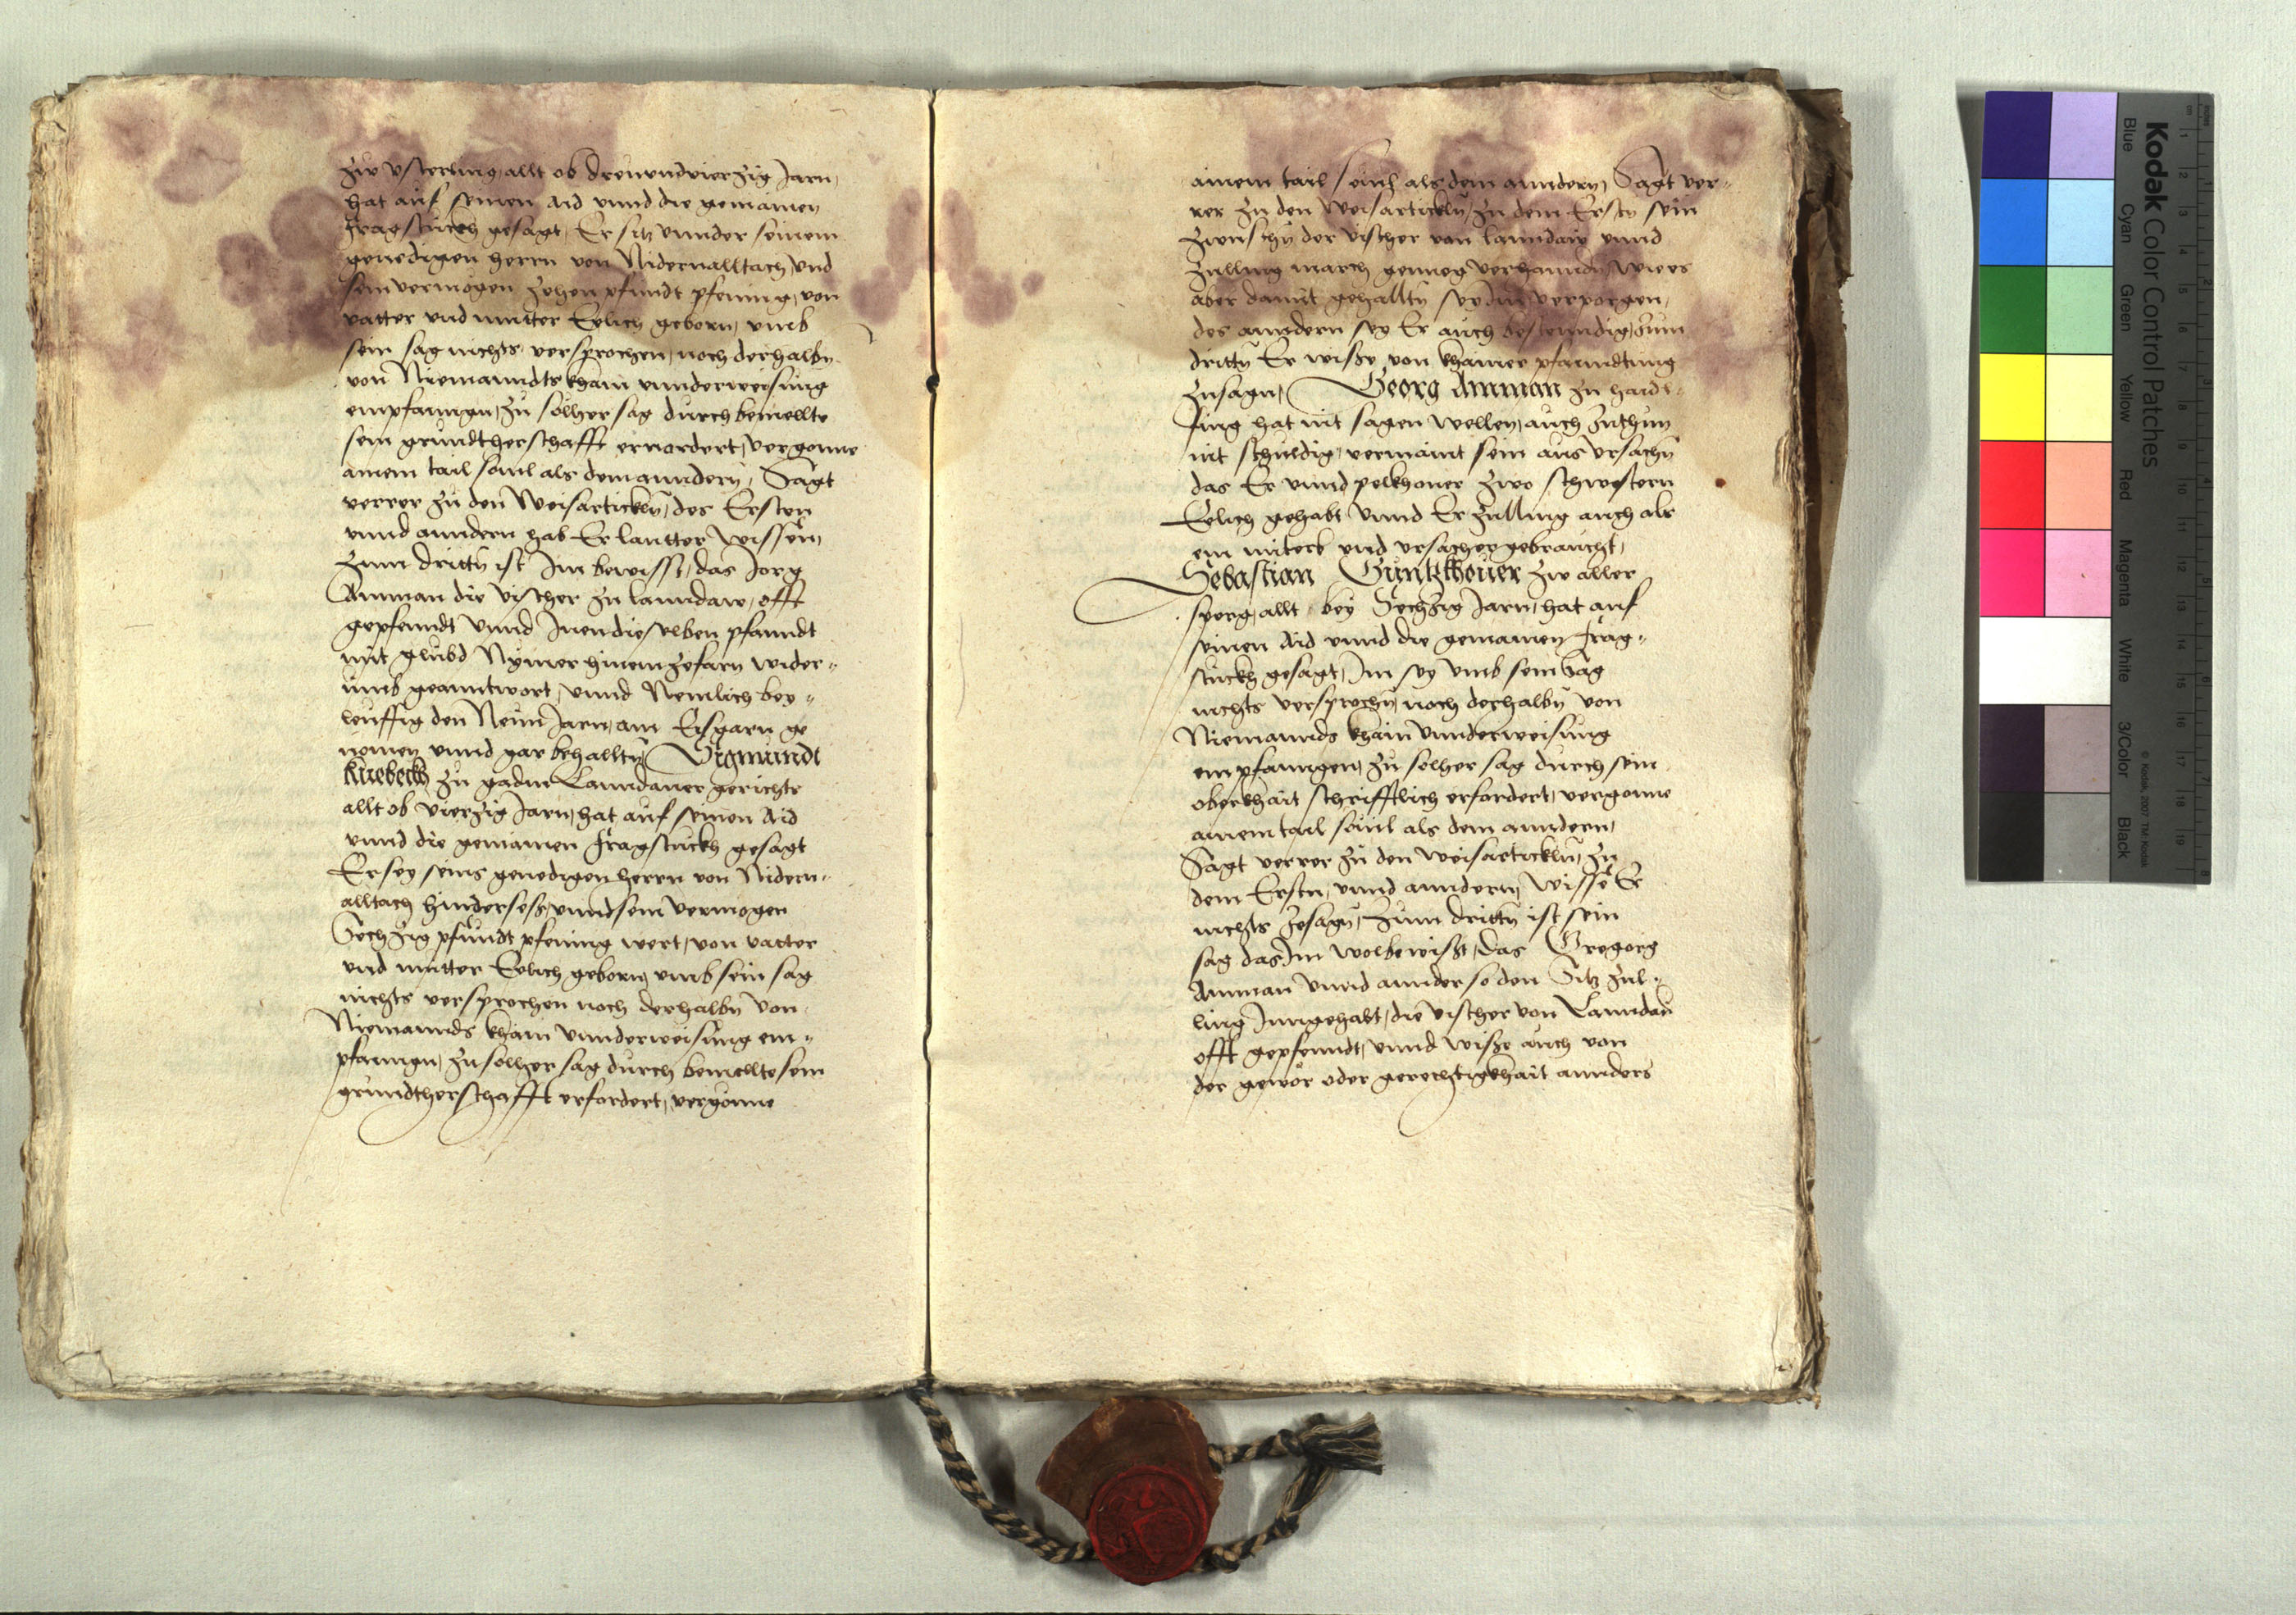 zw Usterling, allt ob dreuundvierzig Jarn,
hat auf seinen Aid unnd die gemainen
fragstuckh gesagt, Er sitz unnder seinem
genedigen herrn von Nidernalltach, und
sein vermogen zehen pfundt pfening, von
vatter und mutter Eelich geborn, umb
sein sag nichts versprochen, noch derhalbn
von Niemanndts khain unnderweisung
empfanngn, zu solher sag durch bemellte
sein grundtherschafft ervordert, vergonne
ainem tail sovil als dem anndern, Sagt
verrer zu den Weisarticklñ, des Ersten
unnd anndern hab Er lautter wissen,
zum drittñ ist Im bewisst, das Jorg
Amman die vischer zu lanndaw, offt
gepfenndt unnd Inen dieselben pfanndt
mit glubd Nymer hinein zefarn wider-
umb geanntwort, unnd Nemlich bey-
leuffig den Neun Jarn, am Eisgarn ge
nomen unnd gar behalltñ, Sigmundt
kuebeckh zu gadm Lanndauer gerichts
allt ob vierzig Jarn, hat auf seinen Aid
unnd die gemainen fragstuckh gesagt
Er sey seins genedigen herrn von Nidern-
alltach hindersess, unnd sein vermogen
Sechzig pfundt pfening wert, von vatter
und mutter Eelich geborn, umb sein sag
nichts versprochen noch derhalbñ von
Niemannds khain unnderweisung em-
pfanngn, zu solher sag durch bemellte sein
grundtherschafft erfordert, vergonne
ainem tail sovil als dem anndern, Sagt ver-
rer zu den Weisarticklñ, zu dem Erstn sein
zwuschñ der vischer von lanndaw unnd
zulling march genueg verhanndñ, wie es
aber damit gehalltñ sey Im verporgen,
des anndern sey Er auch bestenndig, zum
drittñ Er wisse von khainer pfanndtung
zusagn, Georg Amman zu haidl-
fing hat nit sagen wellen, auch zuthun
nit schuldig, vermaint sein aus ursachñ
das Er unnd pelkhouer zwo schwestern
Eelich gehabt unnd Er zulling auch als
ein miterb und ursacher gebraucht,
Sebastian Guntzkhouer zw aller
sperg, allt bey Sechzig Jarn, hat auf
seinen Aid unnd die gemainen frag-
stuckh gesagt, Im sey umb sein Sag
nichts versprochñ, noch derhalbñ von
Niemannds khain unnderweisung
empfanngen, zu solher sag durch sein
oberkhait schrifftlich erfordert, vergonne
ainem tail sovil als dem anndern,
Sagt verrer zu den weisarticklñ, zu
dem Erstn, unnd anndern, wisse Er
nichts zesagñ, Zum drittñ ist sein
sag das Im wolbewisst, das Gregorg
Amman unnd annder so den Sitz zul-
ling Inngehabt, die vischer von Lanndau
offt gepfenndt, unnd wisse auch von
der gewör oder gerechtigkhait annders
Kodak Color Control Patches
Blue Cyan Green Yellow Red Magenta White 3/Color Black
© Kodak, 2007 TM: Kodak